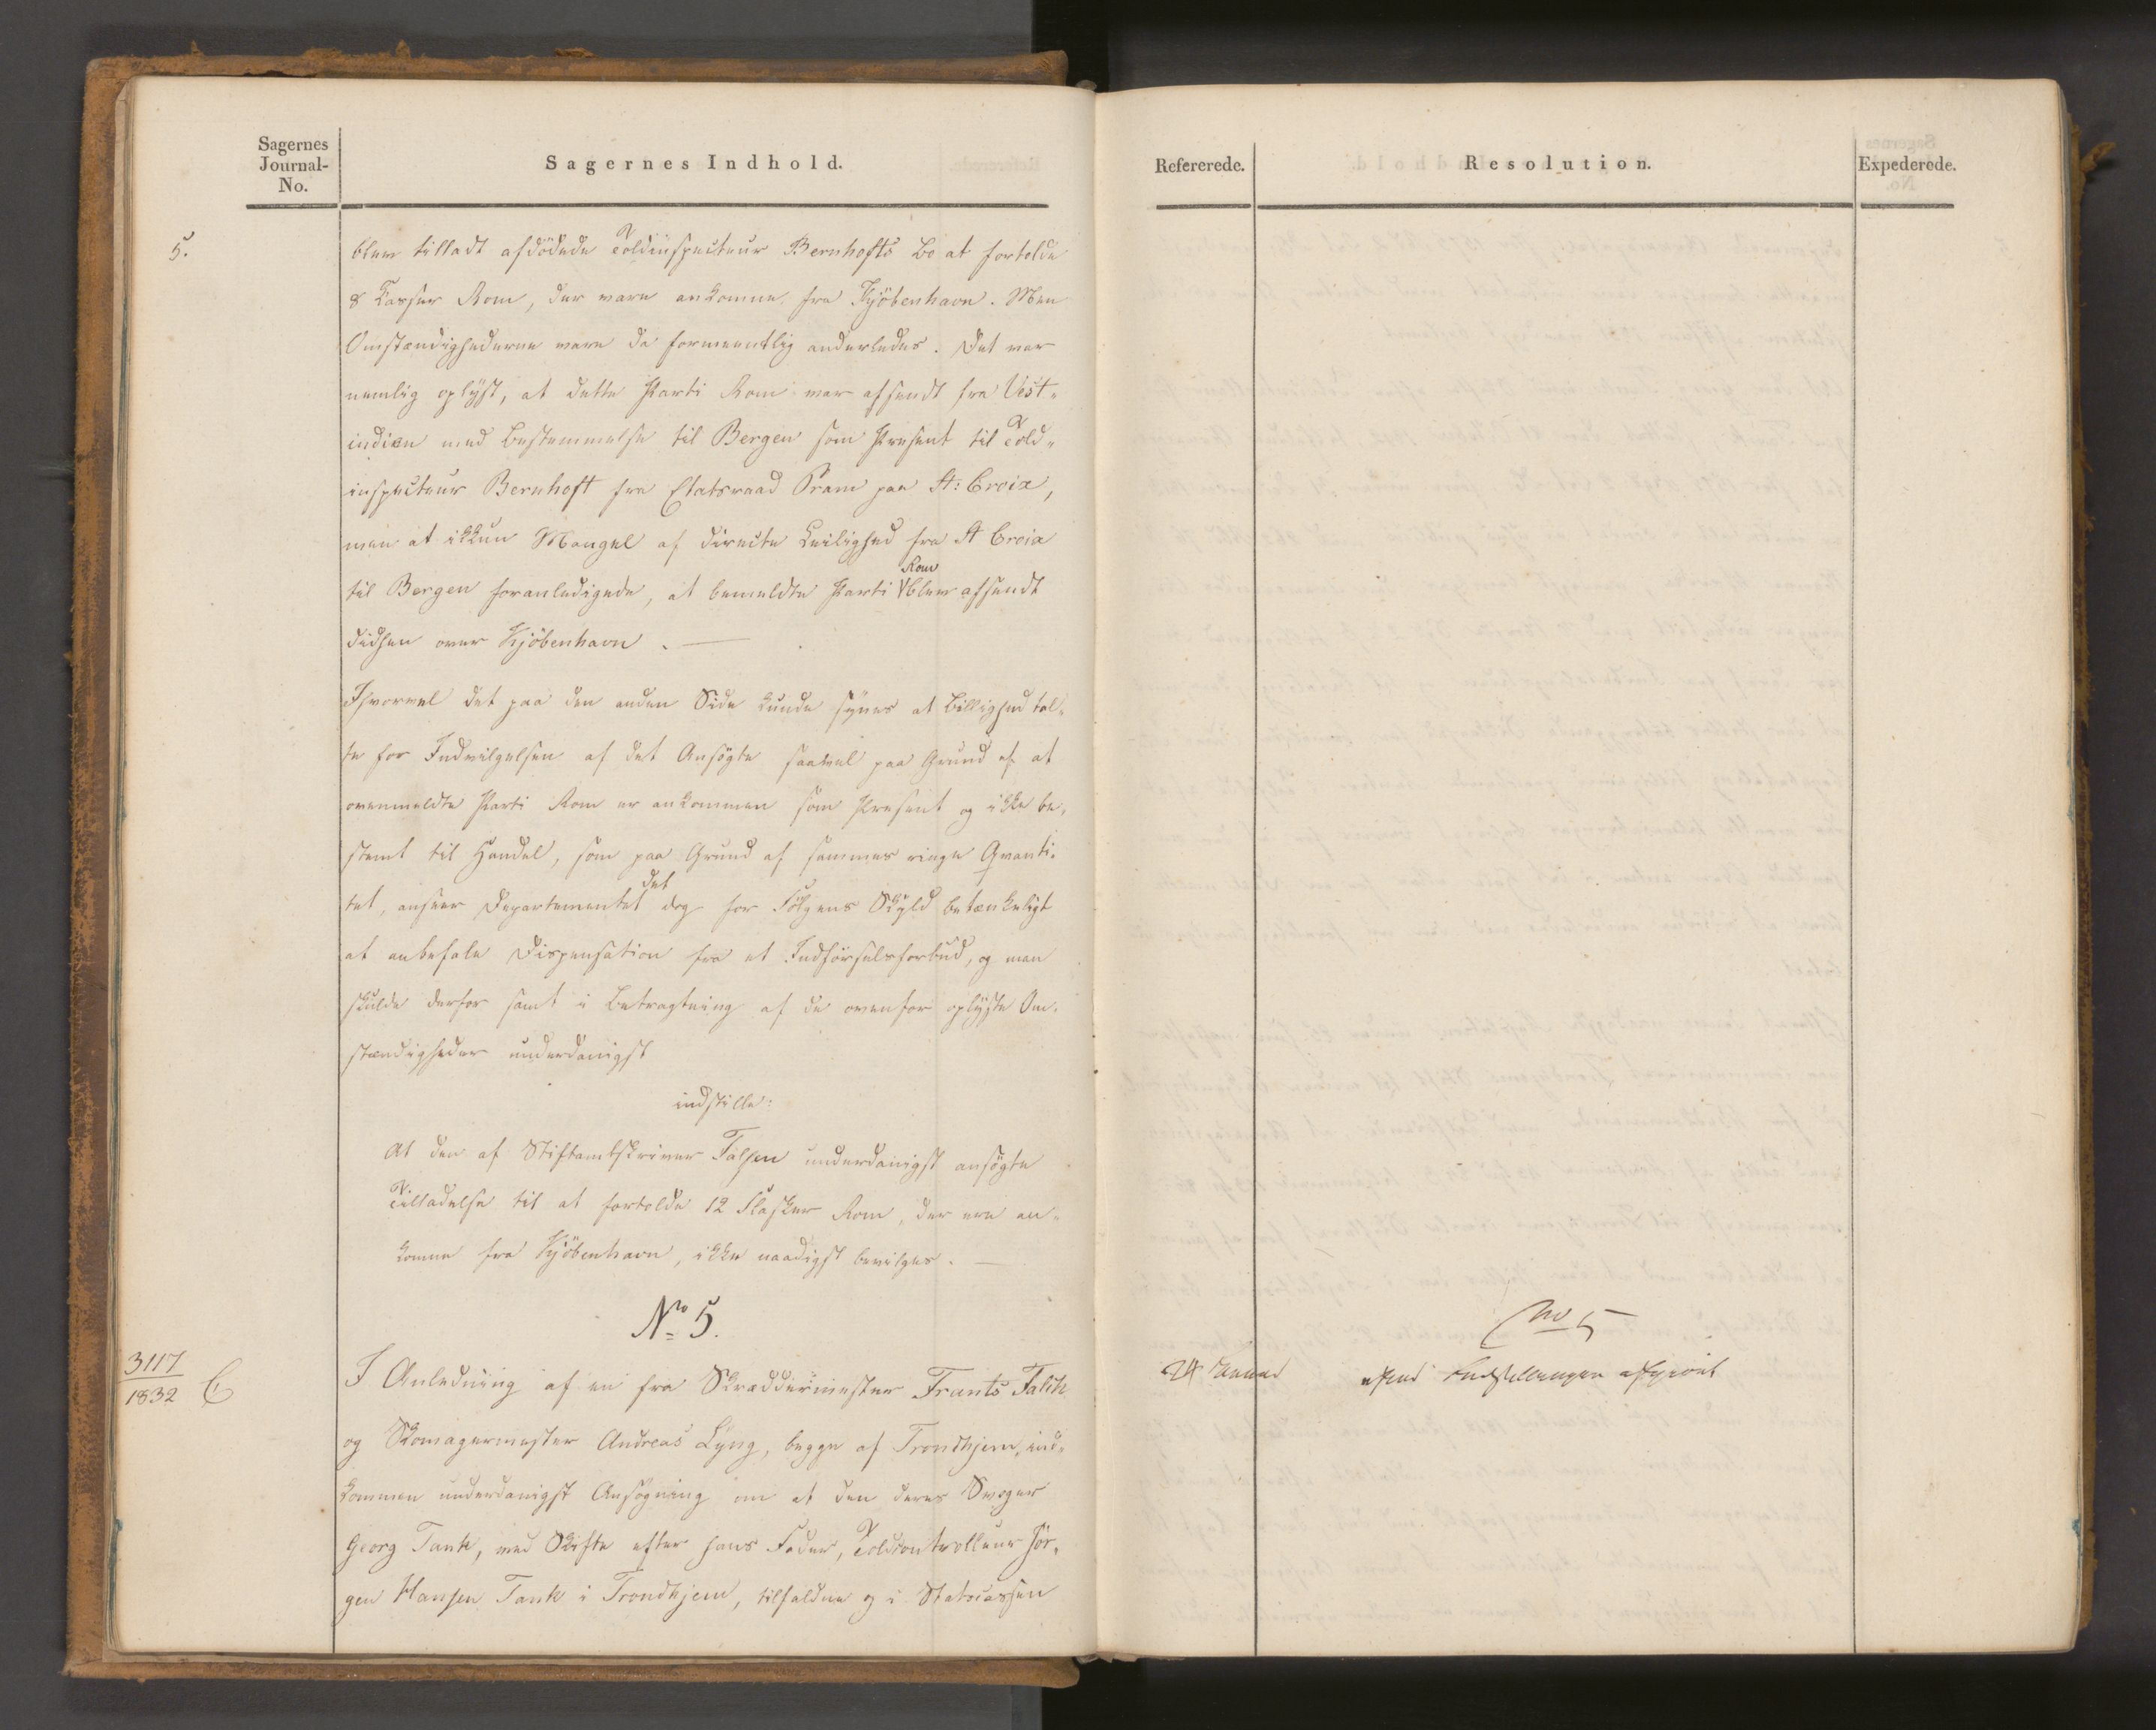 Sagernes
Journal-
No.
Sagernes Indhold.
5.
blev tilladt afdödede Toldinspecteur Bernhofts Bo at fortolde
8 Kasser Rom, der vare ankomne fra Kjöbenhavn. Men
Omstændighederne vare da formeentlig anderledes. Det var
nemlig oplÿst, at dette Parti Rom var afsendt fra Vest-
indien med Bestemmelse til Bergen som Present til Told-
inspecteur Bernhoft fra Etatsraad Pram paa St: Croix,
men at ikkun Mangel af directe Leilighed fra St Croix
til Bergen foranledigede, at bemeldte Parti Rom blev afsendt
didhen over Kjöbenhavn. —
Hvorvel det paa den anden Side kunde sÿnes at Billighed tal-
te for Indvilgelsen af det Ansögte saavel paa Grund af at
ovenmeldte Parti Rom er ankommen som Present og ikke be-
stemt til Handel, som paa Grund af sammes ringe Qvanti-
tet, anseer Departementet det dog for Fölgens Skÿld betænkeligt
at anbefale Dispensation fra et Indförselsforbud, og man
skulde derfor samt i Betragtning af de ovenfor oplÿste Om-
stændigheder underdanigst
indstille:
At den af Stiftamtskriver Falsen underdanigst ansögte
Tilladelse til at fortolde 12 Flasker Rom, der ere an-
komne fra Kjöbenhavn, ikke naadigst bevilges. —
No 5.
3117
1832
I Anledning af en fra Skræddermester Frants Falck
og Skomagermester Andreas Lÿng, begge af Trondhjem, ind-
kommen underdanigst Ansögning om at den deres Svoger
Georg Tank, ved Skifte efter hans Fader, Toldcontrolleur Jör-
gen Hansen Tank i Trondhjem, tilfaldne og i Statscassen
Refererede.
Resolution.
Expederede.
No 5
24 Januar
efter Indstillingen afgjort